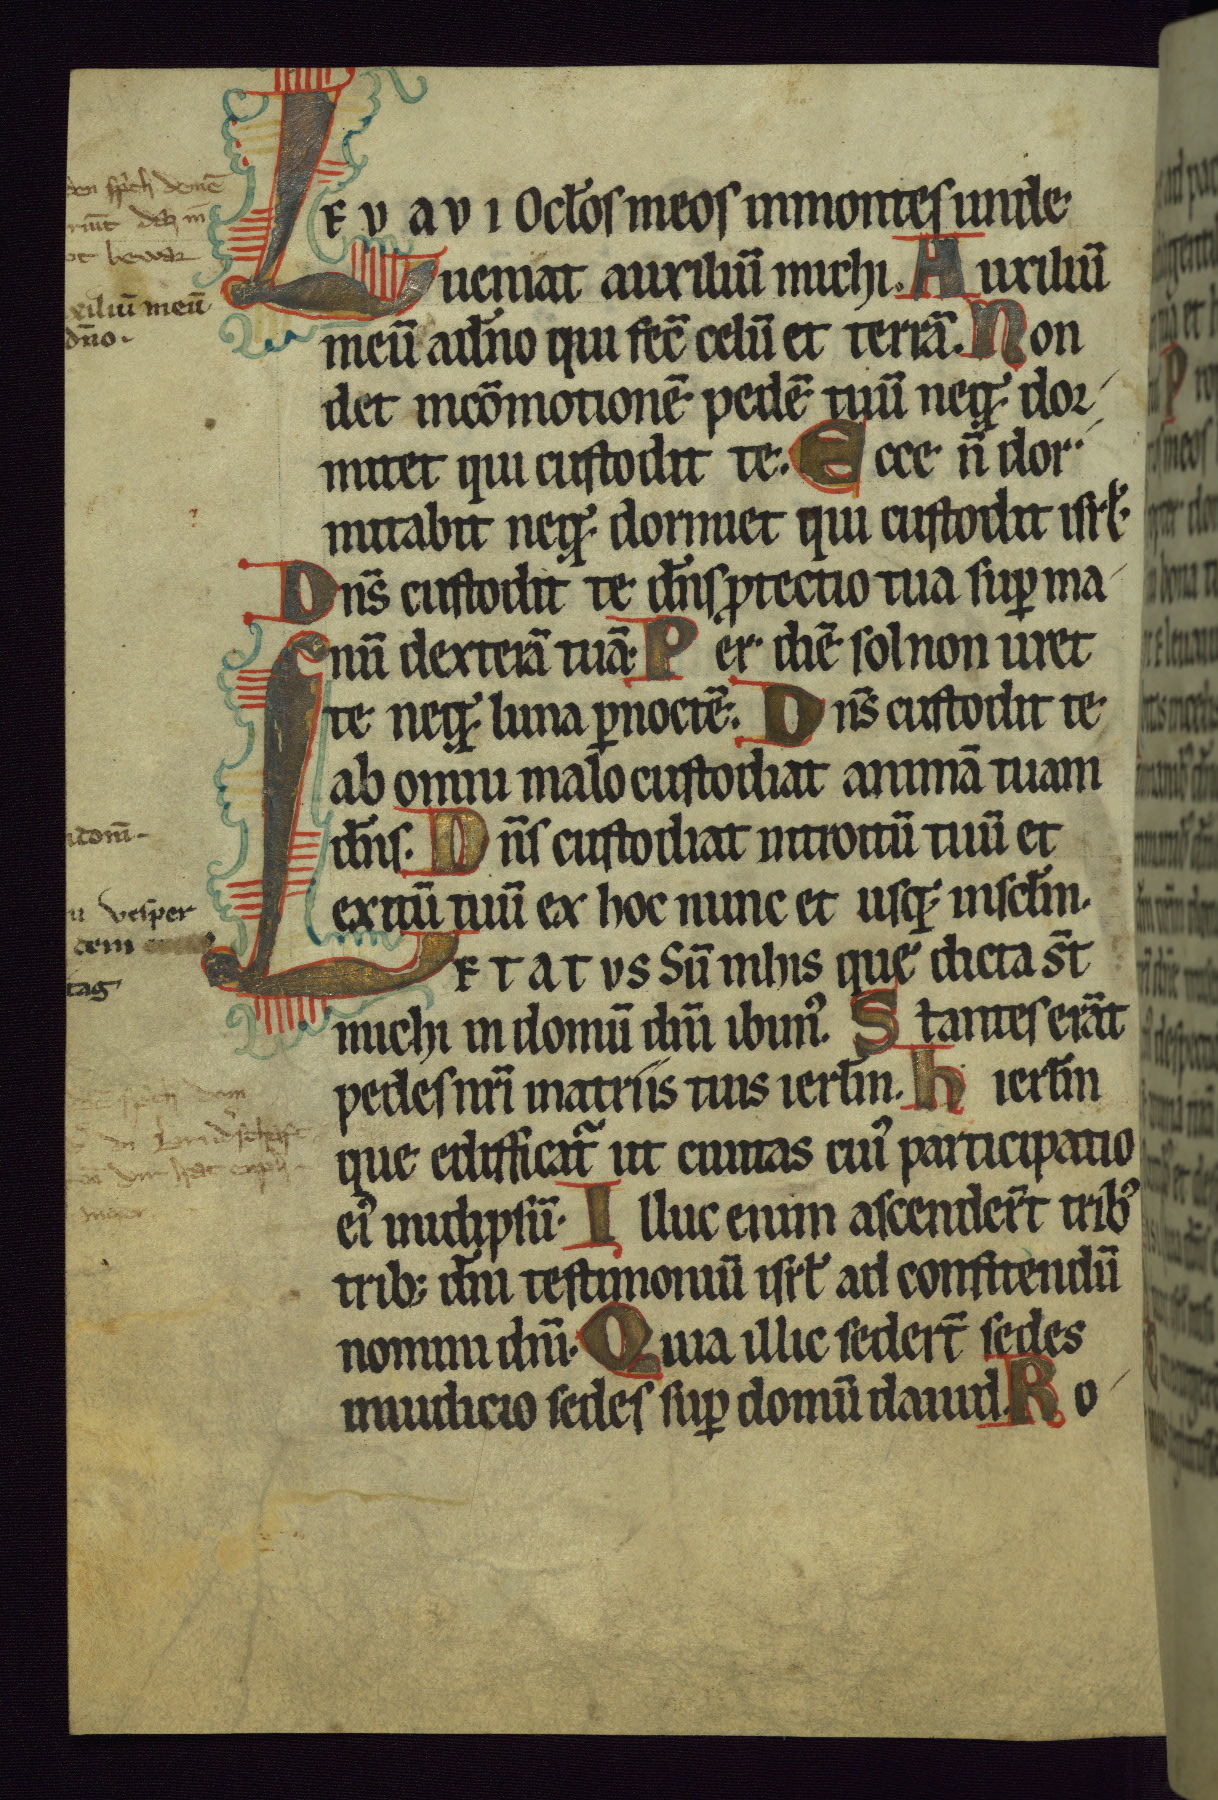 LEVAVI Oclos meos in montes unde
ueniat auxiliū michi. Auxiliū
meū adño qui fec̄ celū et terrā. Non
det in cōmotionē pedē tuū neq; dor
mitet qui custodit te. Ecce ñ dor
mitabit neq; dormiet qui custodit isrl
Dñs custodit te dñs ꝓtectio tua suꝑ ma
nū dexterā tuā. Per diē sol non uret
te neq; luna ꝑ noctē. Dñs custodit te
ab omni malo custodiat animā tuam
dñs. Dñs custodiat introitū tuū et
exitū tuū ex hoc nunc et usq; in sclm.
LETATVS Sū in his que dicta s̄t
michi in domū dñi ibimꝰ. Stantes erāt
pedes nr̄i in atriis tuis ierlm. Hierlm
que edifficat̄ ut ciuitas cuiꝰ participatio
eiꝰ in idipsū. Illuc enim ascender̄t tribꝰ
trib; dñi testimoniū isrl ad confitendū
nomini dñi. Quia illic seder̄t sedes
in iudicio sedes suꝑ domū dauid. Ro
den spch demē
ot bewar
xiliū meū
dño.
u vesper
cem
tag